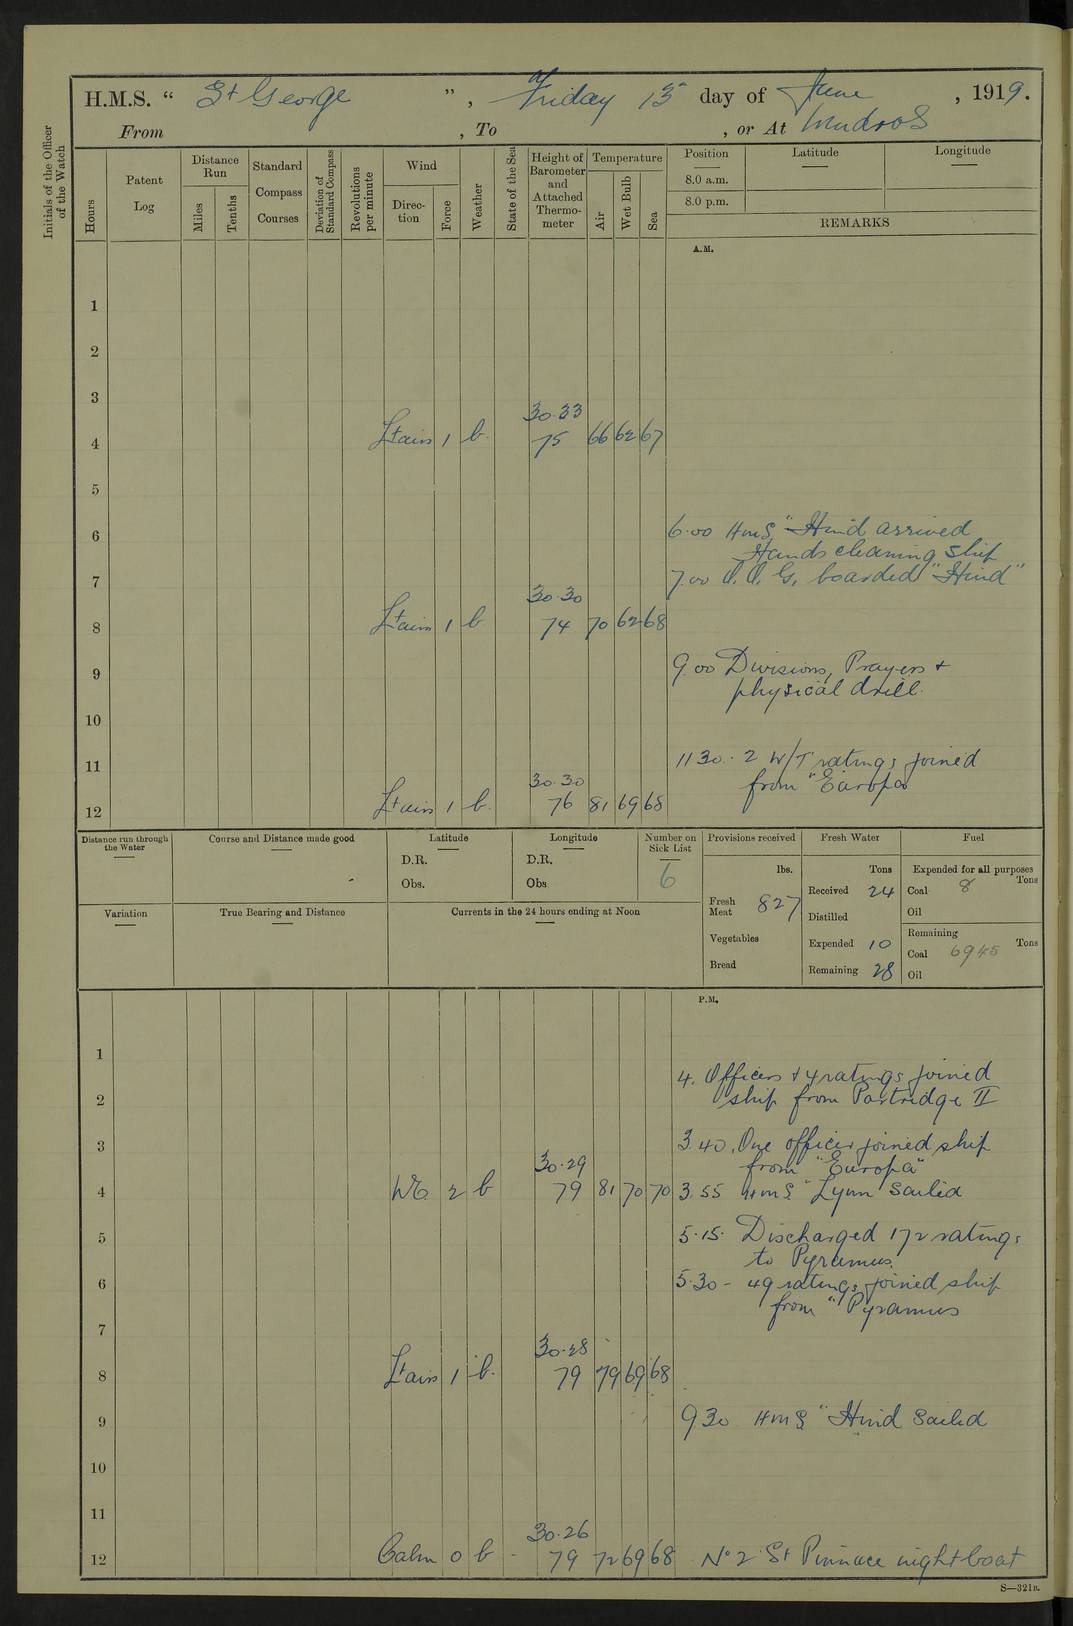 H.M.S. “ St George ” , Friday 13 day of June , 1919.
From , To , or At Mudros
Initials of the Officer of the Watch
Hours
Patent Log
Distance Run
Miles
Tenths
Standard Compass Courses
Deviation of Standard Compass
Revolutions per minute
Wind
Direction
Force
Weather
State of the Sea
Height of Barometer and Attached Thermometer
Temperature
Air
Wet Bulb
Sea
Position
8.0 a.m.
8.0 p.m.
Latitude
Longitude
REMARKS
A.M.
1
2
3
30.33
4 Lt airs 1 b. 75 66 62 67
5
6 6.00 HMS "Hind arrived
Hands cleaning ship
7 7.00 O.O.G. boarded "Hind"
30.30
8 Lt airs 1 b 74 70 62 68
9 9.00 Divisions, Prayers +
physical drill.
10
11 11 30. 2 W/T ratings joined
from "Europa
30.30
12 Lt airs 1 b. 76 81 69 68
Distance run through the Water
Course and Distance made good
Latitude
D.R.
Obs.
Longitude
D.R.
Obs
Number on Sick List
6
Provisions received
lbs.
Fresh Meat 827
Vegetables
Bread
Fresh Water
Tons
Received 24
Distilled
Expended 10
Remaining 28
Fuel
Expended for all purposes
Coal 8 Tons
Oil
Remaining
Coal 6945 Tons
Oil
Variation
True Bearing and Distance
Currents in the 24 hours ending at Noon
P.M.
1
4. Officers + 4 ratings joined
2 ship from Partridge II
3 3.40. One officer joined ship
30.29 from "Europa"
4 WG 2 b 79 81 70 70 3.55 HMS "Lynn sailed
5 5.15. Discharged 172 ratings
to Pyramus.
6 5.30 - 49 ratings joined ship
from "Pyramus
7
30.28
8 Lt airs 1 b. 79 79 69 68
9 9 30 HMS "Hind sailed
10
11
30.26
12 Calm 0 b - 79 72 69 68 No 2 St Pinnace night boat
S—321B.